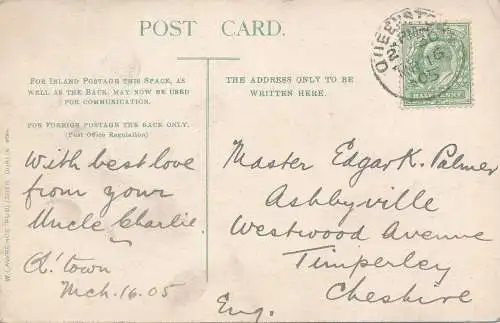 POST CARD.
FOR INLAND POSTAGE THIS SPACE, AS
WELL AS THE BACK, MAY NOW BE USED
FOR COMMUNICATION.
FOR FOREIGN POSTAGE THE BACK ONLY.
(Post Office Regulation)
THE ADDRESS ONLY TO BE
WRITTEN HERE.
With best love
from your
Uncle Charlie.
Q'town
Mch. 16. 05
Master Edgar K. Palmer
Ashbyville
Westwood Avenue
Timperley
Cheshire
Eng.
W. LAWRENCE, PUBLISHER, DUBLIN
QUEENSTOWN
16
05
HALF PENNY